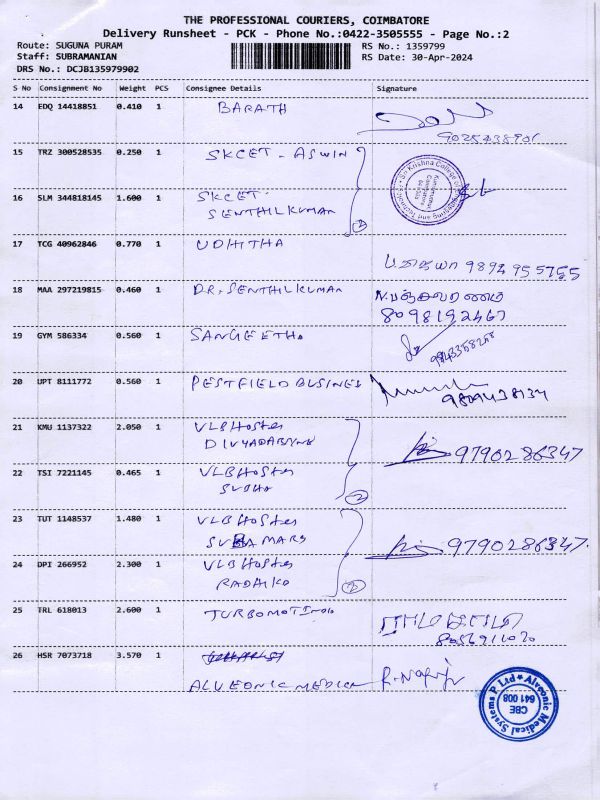 THE PROFESSIONAL COURIERS, COIMBATORE
Delivery Runsheet - PCK - Phone No.:0422-3505555 - Page No.:2
Route: SUGUNA PURAM
RS No.: 1359799
Staff: SUBRAMANIAN
RS Date: 30-Apr-2024
DRS No.: DCJB135979902
S No Consignment No Weight PCS Consignee Details Signature
14 EDQ 14418851 0.410 1 BARATH
15 TRZ 300528535 0.250 1 SKCET - ASWIN
16 SLM 344818145 1.600 1 SKCET -
SENTHILKUMAR
2
17 TCG 40962846 0.770 1 UDHITHA
9894 955755
18 MAA 297219815 0.460 1 DR. SENTHILKUMAR
8098192467
19 GYM 586334 0.560 1 SANGEETHA
20 UPT 8111772 0.560 1 PESTFIELD BUSINES
21 KMU 1137322 2.050 1 VLB Hostes
9790286347
22 TSI 7221145 0.465 1 VLB Hostes
SUDHA
2
23 TUT 1148537 1.480 1 VLB Hostes
9790286347
24 DPI 266952 2.300 1 VLB Hostes
RADHIKA
2
25 TRL 618013 2.600 1 TURBOMOTINDO
26 HSR 7073718 3.570 1
ALVEONIC MEDICA
Sri Krishna College of Engineering and Technology
Alveonic Medical Systems P Ltd
CBE
641 008